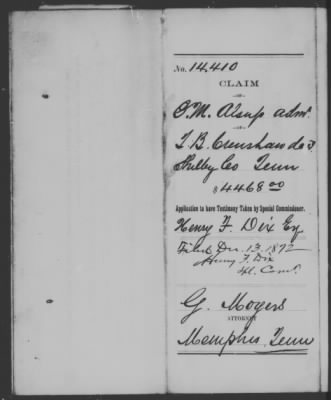 No. 14,410
CLAIM
OF
O. M. Alsup admr.
OF
T. B. Crenshaw decd
Shelby Co Tenn
$4468.00
Application to have Testimony Taken by Special Commissioner.
Henry F. Dix Esq
Filed Dec. 13. 1872
Henry F. Dix
Spl. Comr.
G. Moyers
ATTORNEY
Memphis, Tenn